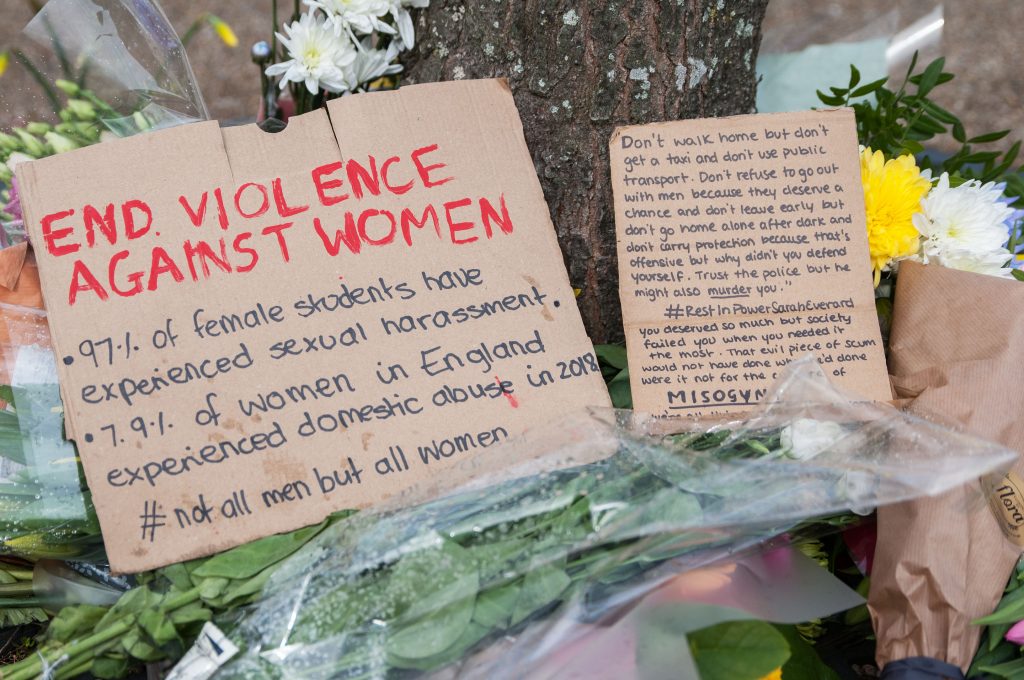 END. VIOLENCE
AGAINST WOMEN
• 97% of female students have
experienced sexual harassment.
• 7.9% of women in England
experienced domestic abuse in 2018
# not all men but all women
Don't walk home but don't
get a taxi and don't use public
transport. Don't refuse to go out
with men because they deserve a
chance and don't leave early but
don't go home alone after dark and
don't carry protection because that's
offensive but why didn't you defend
yourself. Trust the police but he
might also murder you."
#RestInPowerSarahEverard
you deserved so much but society
failed you when you needed it
the most. That evil piece of scum
would not have done what he'd done
were it not for the of
MISOGYN
flora